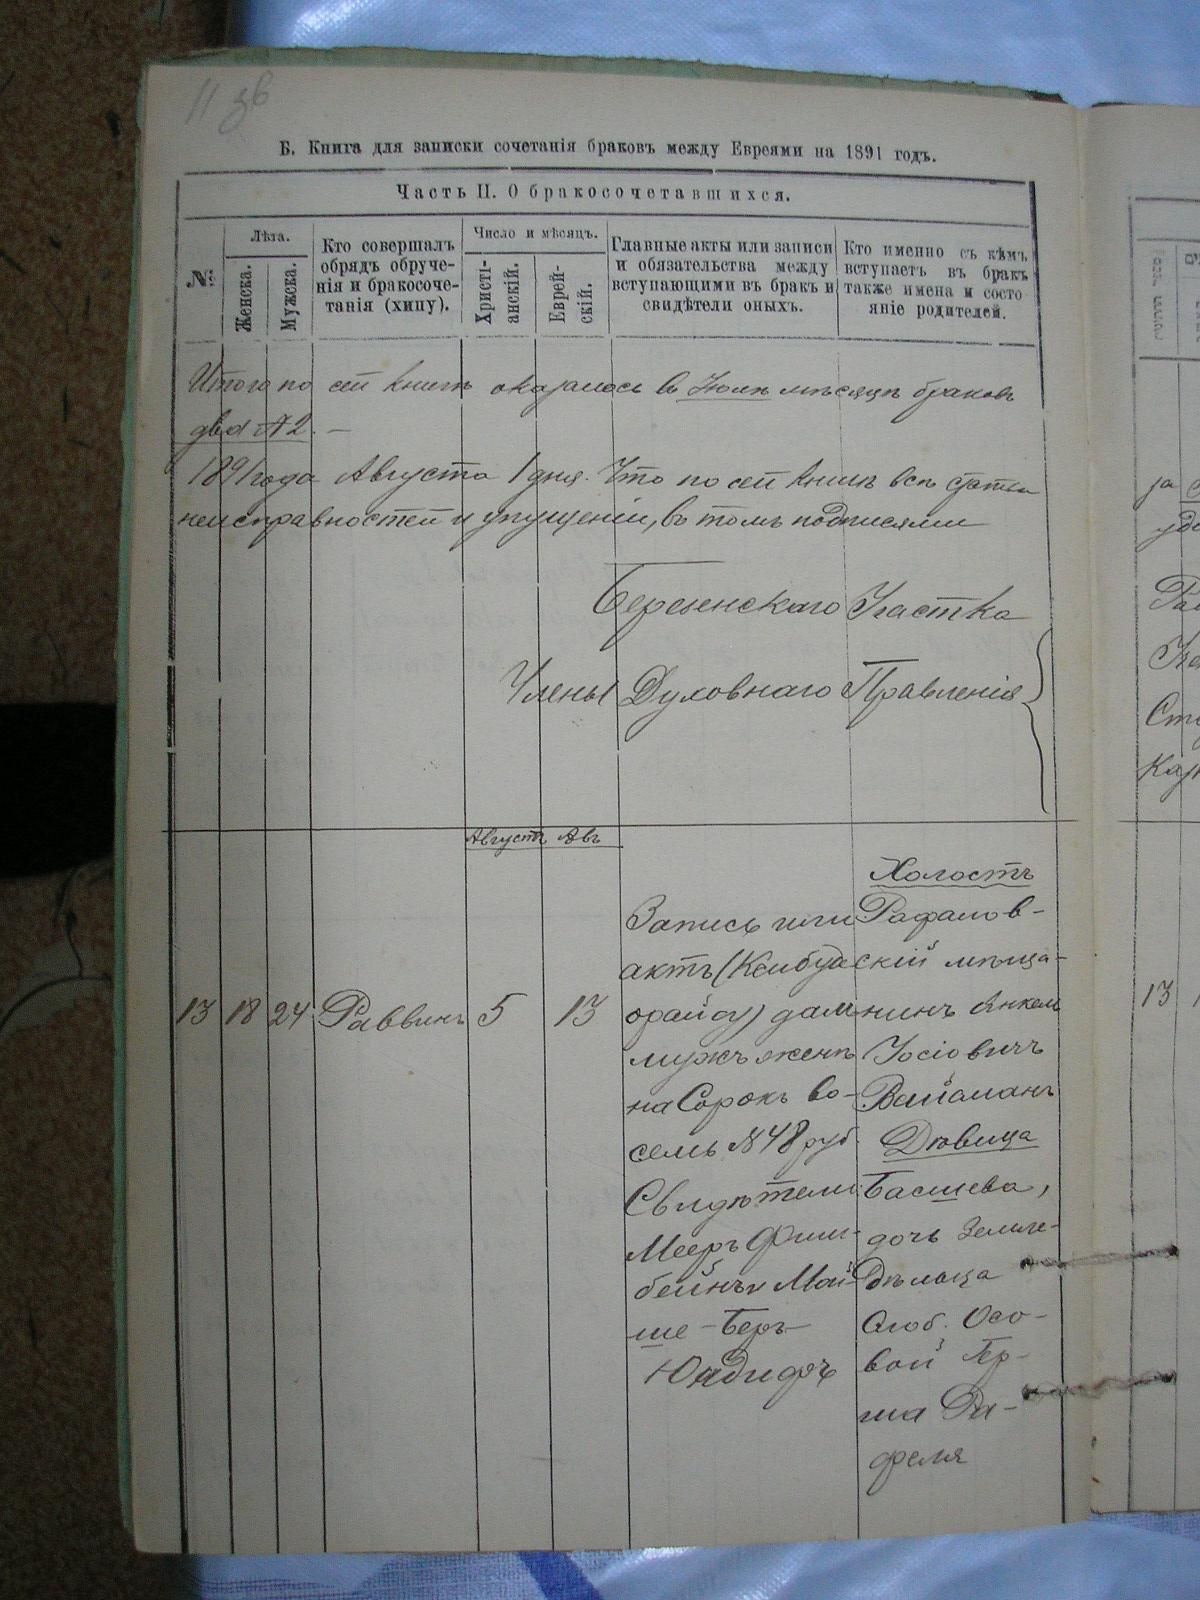 11 зв
Б. Книга для записки сочетанія браковъ между Евреями на 1891 годъ.
Часть II. О бракосочетавшихся.
№
Лѣта.
Женска.
Мужска.
Кто совершалъ
обрядъ обруче-
нія и бракосоче-
танія (хипу).
Число и мѣсяцъ.
Христі-
анскій.
Еврей-
скій.
Главные акты или записи
и обязательства между
вступающими въ бракъ и
свидѣтели оныхъ.
Кто именно съ кѣмъ
вступаетъ въ бракъ
также имена и состо
яніе родителей.
Итого по сей книгѣ оказалось въ Іюлѣ мѣсяцѣ браковъ
два №2. —
1891 года Августа 1 дня. Что по сей книгѣ всѣ статьи
неисправностей и упущеній, въ томъ подписями
Березенскаго Участка
Члены Духовнаго Правленія
Августъ Авъ
13 18 24 Раввинъ 5 13
Запись или
актъ (Кейбуда
орайсу) далъ
мужъ женѣ
на Сорокъ во-
семь №48 руб.
Свидѣтели:
Мееръ Фиш-
бейнъ и Мой-
ше-Беръ
Юдидъ
Холостъ
Рафалов-
скій мѣща-
нинъ Янкель
Іосіовичъ
Вайсманъ
Дѣвица
Басшева,
дочь Земле-
дѣльца
Слоб. Осо-
вой Гер-
ша Ра-
феля
13